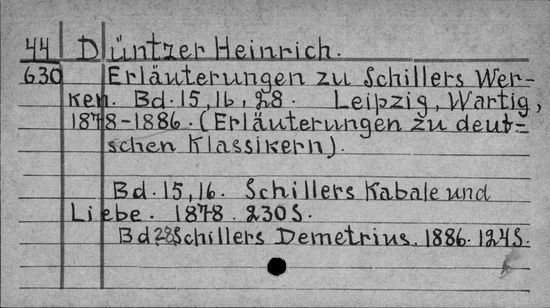 44 Düntzer Heinrich.
630 Erläuterungen zu Schillers Wer-
ken. Bd. 15, 16, 28. Leipzig, Wartig,
1878-1886. (Erläuterungen zu deut=
schen Klassikern).
Bd. 15, 16. Schillers Kabale und
Liebe. 1878. 230 S.
Bd 28 Schillers Demetrius. 1886. 124 S.